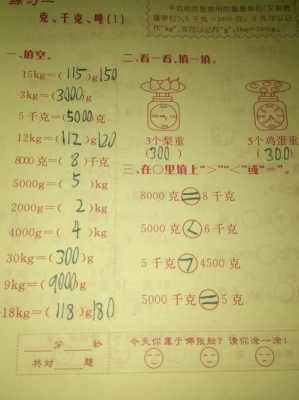 克、千克、吨(1)
一、填空。
15kg=(115)g150
3kg=(3000)g
5千克=(5000)克
12kg=(112)g120
8000克=(8)千克
5000g=(5)kg
2000g=(2)kg
4000g=(4)kg
30kg=(300)g
9kg=(9000)g
18kg=(118)g180
二、看一看,填一填。
3个梨重
(300)
5个鸡蛋重
(300)
三、在○里填上“>”“<”或“=”。
8000克=8千克
5000克<6千克
5千克>4500克
5000千克=5克
分
共对 题
今天你属于哪张脸?请你涂一涂!